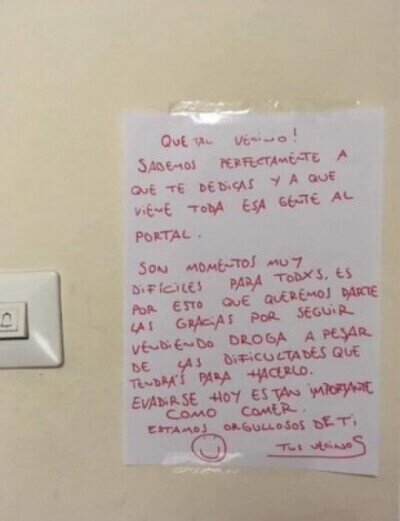 QUE TAL VECINO!
SABEMOS PERFECTAMENTE A
QUE TE DEDICAS Y A QUE
VIENE TODA ESA GENTE AL
PORTAL.
SON MOMENTOS MUY
DIFÍCILES PARA TODXS, ES
POR ESTO QUE QUEREMOS DARTE
LAS GRACIAS POR SEGUIR
VENDIENDO DROGA A PESAR
DE LAS DIFICULTADES QUE
TENDRÁS PARA HACERLO.
EVADIRSE HOY ES TAN IMPORTANTE
COMO COMER.
ESTAMOS ORGULLOSOS DE TI
TUS VECINOS